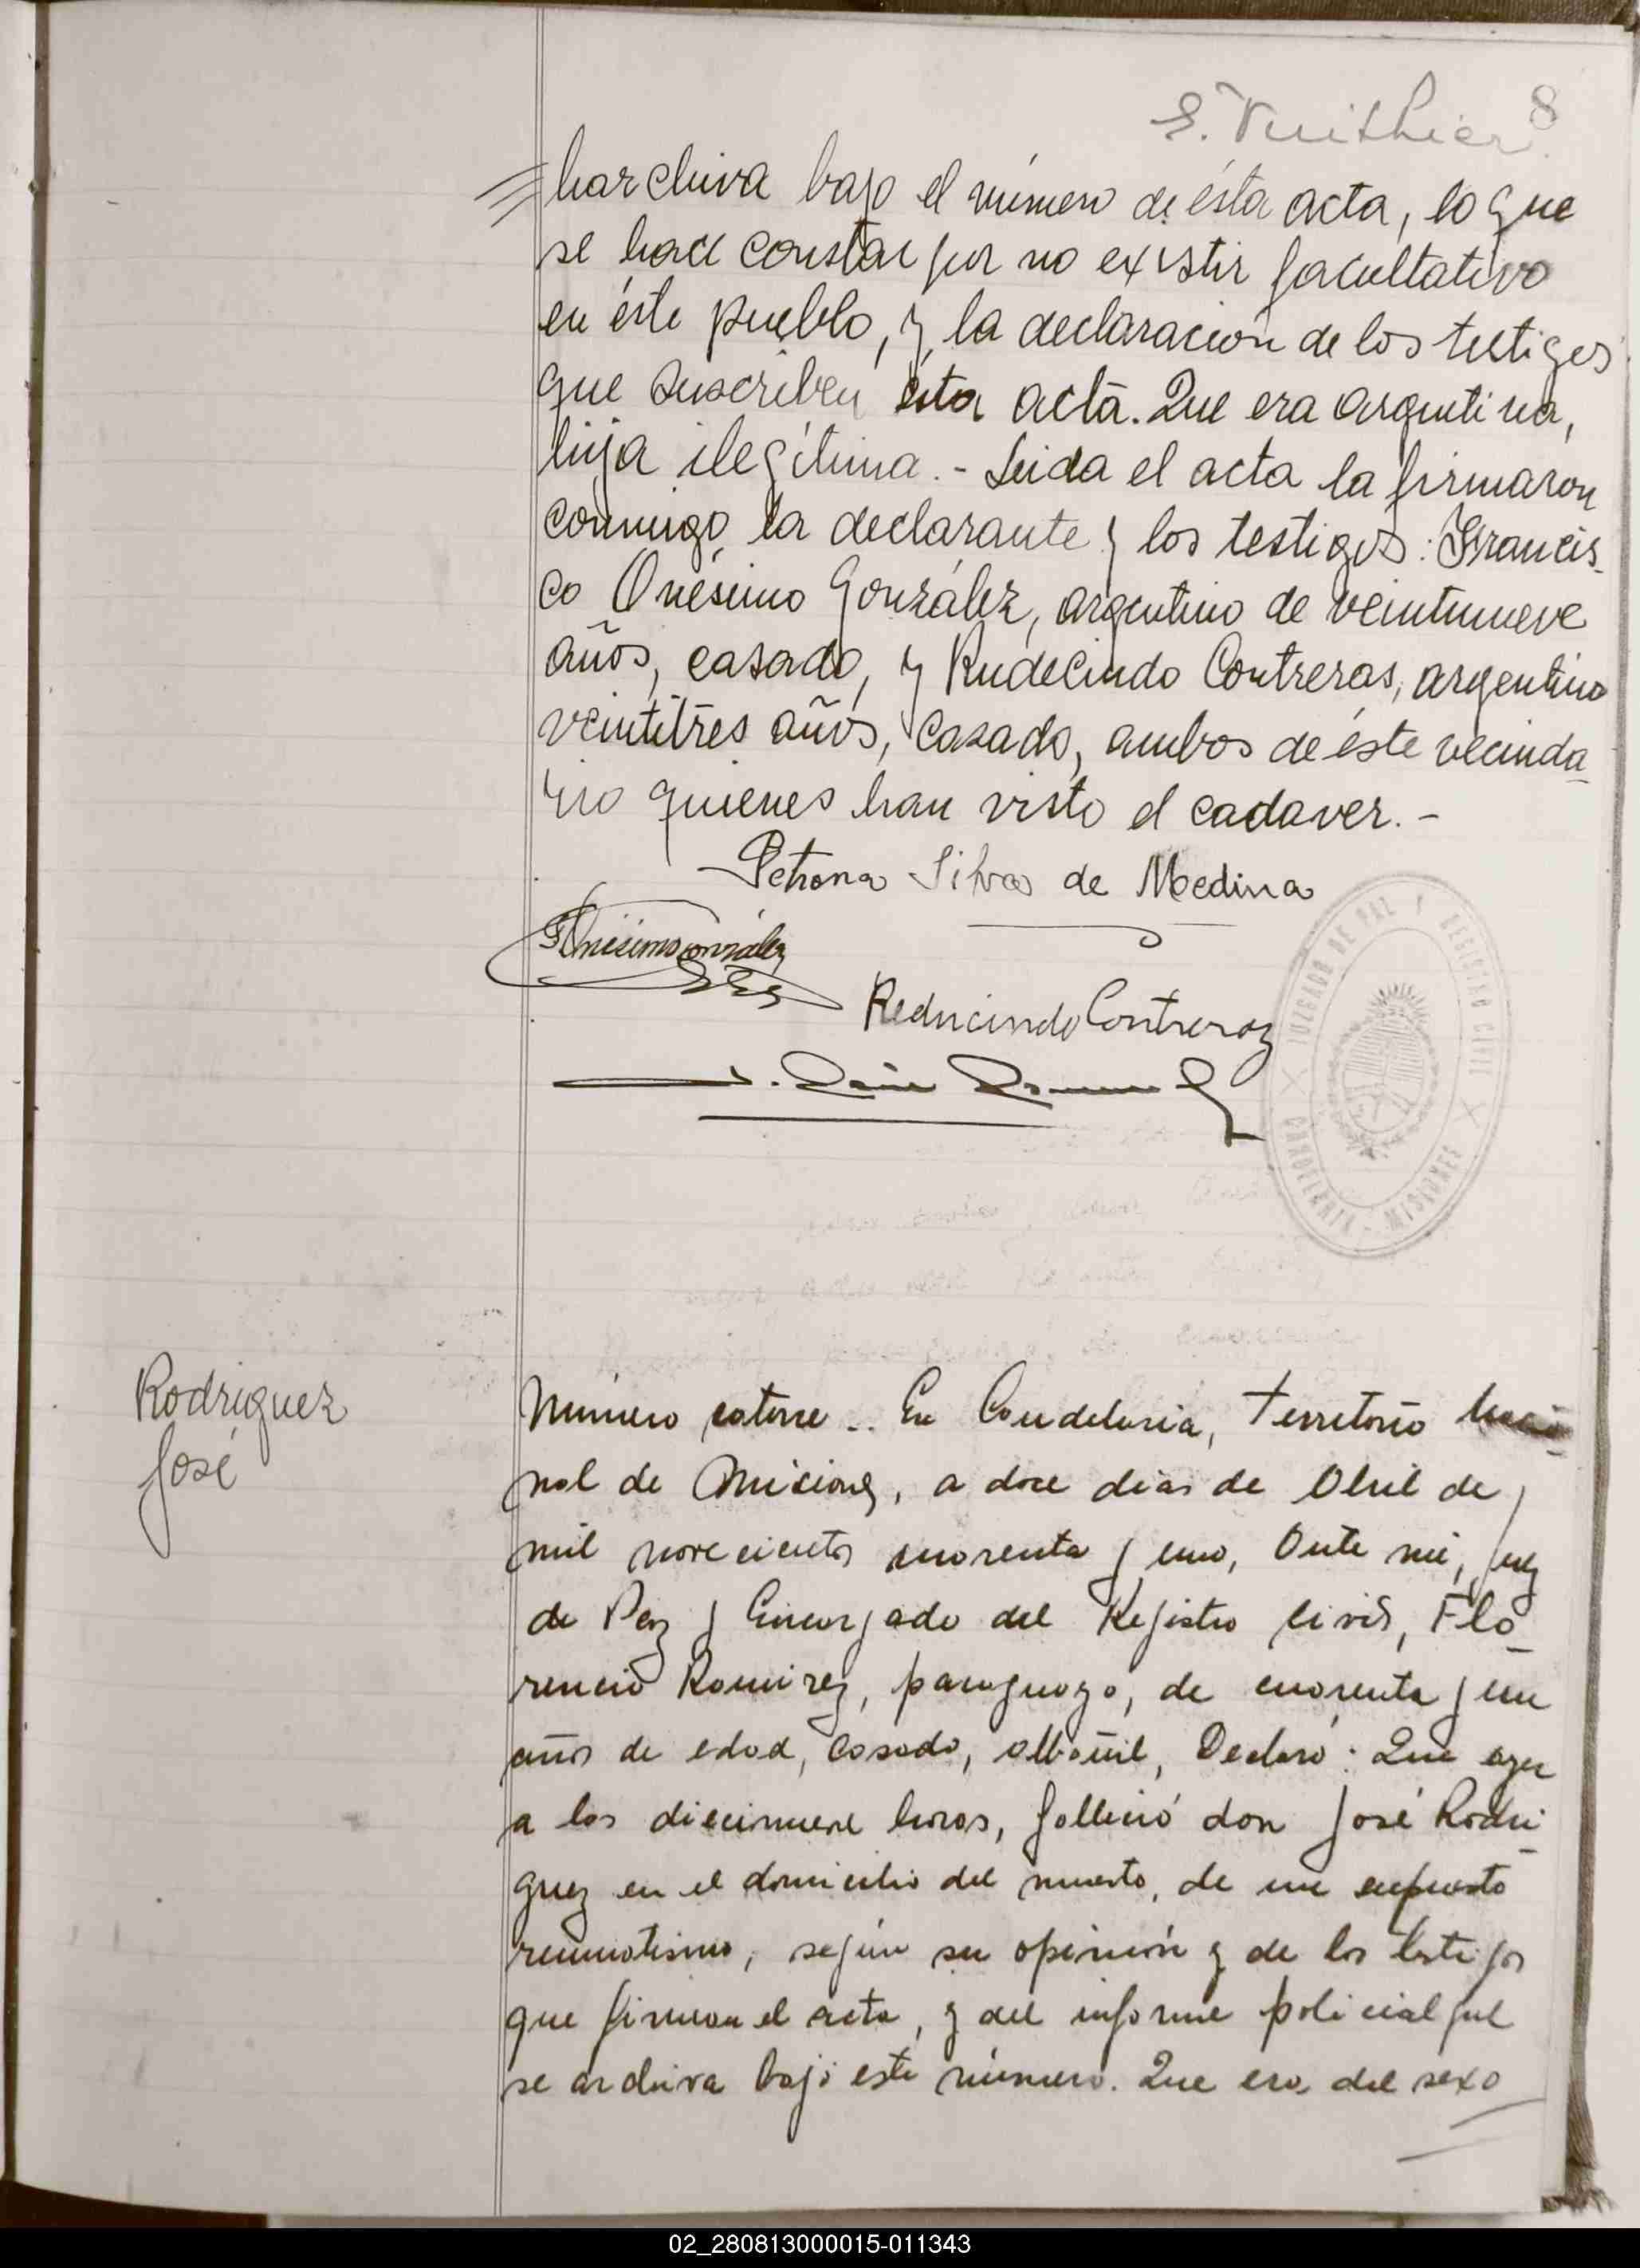 8
S. Vuithier
harchiva bajo el número de ésta acta, lo que
se hace constar por no existir facultativo
en éste pueblo, y la declaración de los testigos
que suscriben ésta acta. Que era argentina,
hija ilegítima. - Leida el acta la firmaron
conmigo la declarante y los testigos: Francis-
co Onésimo González, argentino de veintinueve
años, casado, y Rudecindo Contreras, argentino
veintitrés años, casado, ambos de éste vecinda-
rio quienes han visto el cadaver. -
Petrona Silva de Medina
F Onésimo González
Reducindo Contreras
JUZGADO DE PAZ Y REGISTRO CIVIL
CANDELARIA - MISIONES
Rodríguez
José
Número catorce .. En Candelaria, Territorio Nacio-
nal de Misiones, a doce dias de Abril de
mil novecientos cuarenta y uno, Ante mi, Juez
de Paz y Encargado del Registro Civil, Flo-
rencio Ramirez, paraguayo, de cuarenta y un
años de edad, casado, albañil, Declaró: Que ayer
a las diecinueve horas, falleció don José Rodri-
guez en el domicilio del muerto, de un supuesto
reumatismo, según su opinión y de los testigos
que firman el acta, y del informe policial que
se archiva bajo este número. Que era del sexo
02_280813000015-011343